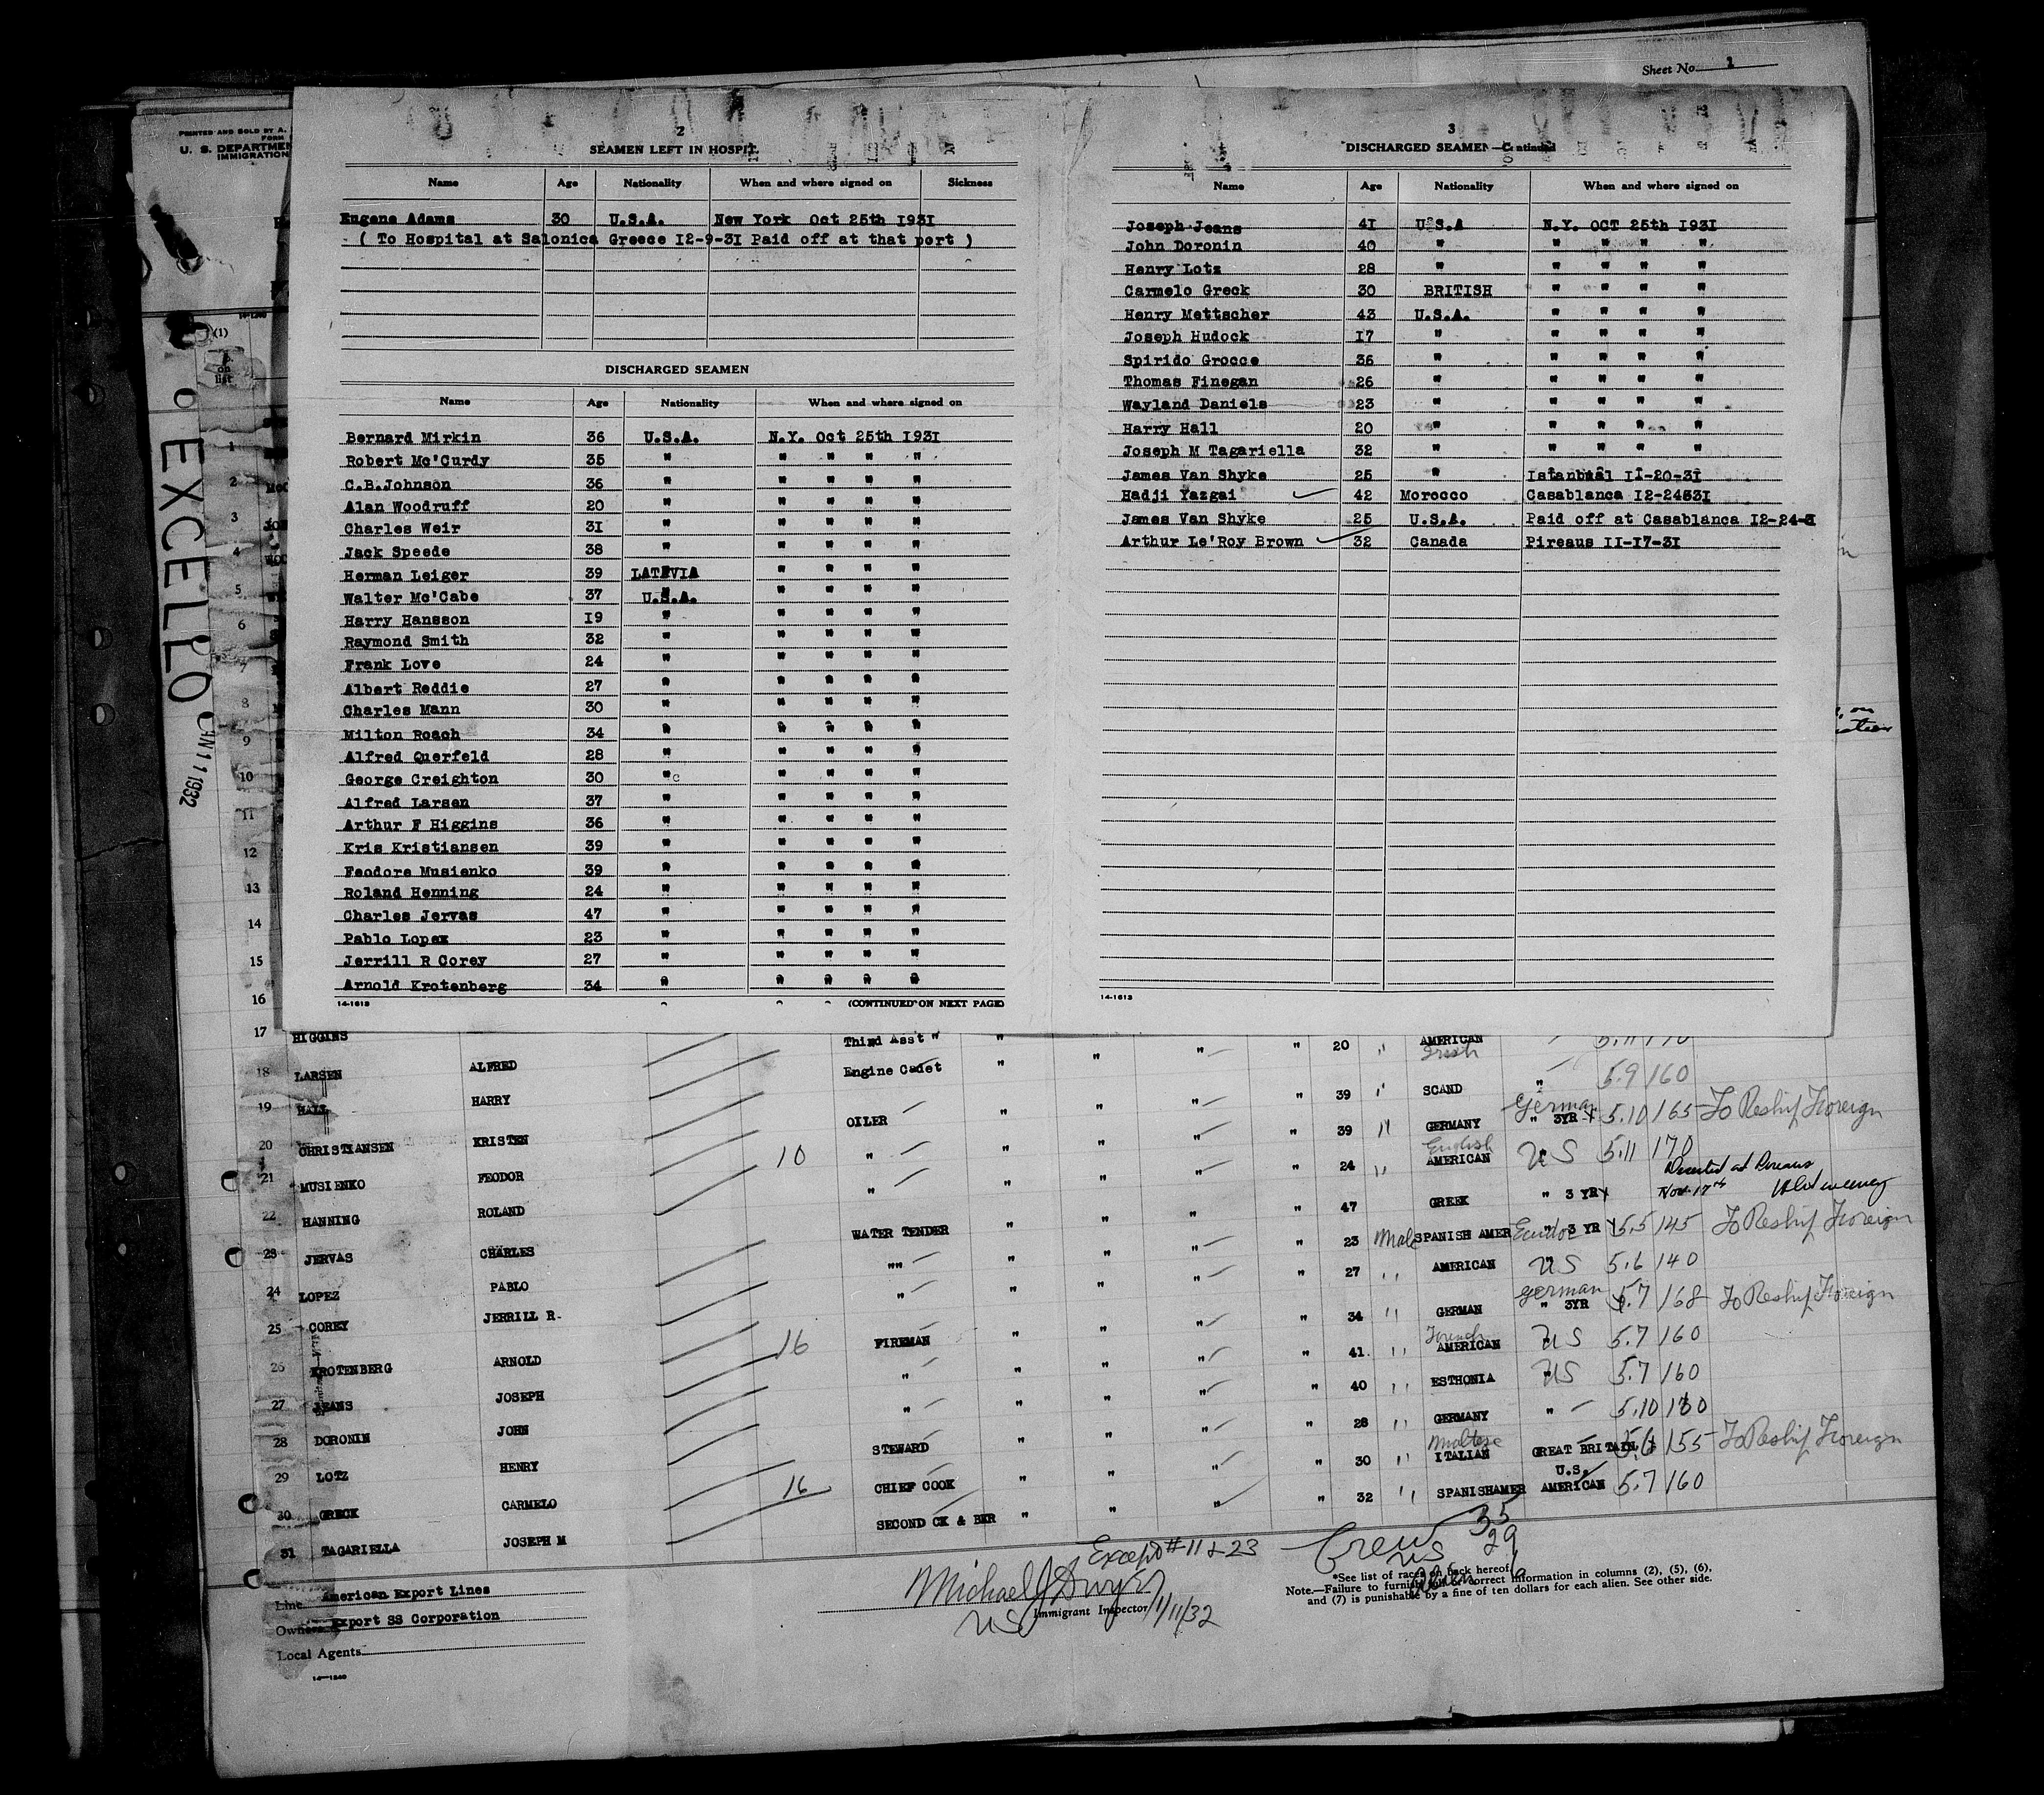 Sheet No. 1
PRINTED AND SOLD BY A.
FORM
U. S. DEPARTMEN
IMMIGRATION
14-1240
(1)
on
list
EXCELLO
JAN 11 1932
2
SEAMEN LEFT IN HOSPIT
Name Age Nationality When and where signed on Sickness
Eugene Adams 30 U.S.A. New York Oct 25th 1931
( To Hospital at Salonica Greece 12-9-31 Paid off at that port )
DISCHARGED SEAMEN
Name Age Nationality When and where signed on
Bernard Mirkin 36 U.S.A. N.Y. Oct 25th 1931
Robert Mc'Curdy 35 " " " " "
C.B.Johnson 36 " " " " "
Alan Woodruff 20 " " " " "
Charles Weir 31 " " " " "
Jack Speede 38 " " " " "
Herman Leiger 39 LATVIA " " " "
Walter Mc'Cabe 37 U.S.A. " " " "
Harry Hansson 19 " " " " "
Raymond Smith 32 " " " " "
Frank Love 24 " " " " "
Albert Reddie 27 " " " " "
Charles Mann 30 " " " " "
Milton Roach 34 " " " " "
Alfred Querfeld 28 " " " " "
George Creighton 30 " " " " "
Alfred Larsen 37 " " " " "
Arthur F Higgins 36 " " " " "
Kris Kristiansen 39 " " " " "
Feodore Musienko 39 " " " " "
Roland Henning 24 " " " " "
Charles Jervas 47 " " " " "
Pablo Lopez 23 " " " " "
Jerrill R Corey 27 " " " " "
Arnold Krotenberg 34 " " " " "
14-1613 (CONTINUED ON NEXT PAGE)
3
DISCHARGED SEAMEN—Continued
Name Age Nationality When and where signed on
Joseph Jeans 41 U.S.A N.Y. OCT 25th 1931
John Doronin 40 " " " " "
Henry Lotz 28 " " " " "
Carmelo Greck 30 BRITISH " " " "
Henry Mettscher 43 U.S.A. " " " "
Joseph Hudock 17 " " " " "
Spirido Grocce 36 " " " " "
Thomas Finegan 26 " " " " "
Wayland Daniels 23 " " " " "
Harry Hall 20 " " " " "
Joseph M Tagariella 32 " " " " "
James Van Shyke 25 " Istanbul 11-20-31
Hadji Yazgai 42 Morocco Casablanca 12-24531
James Van Shyke 25 U.S.A. Paid off at Casablanca 12-24-31
Arthur Le'Roy Brown 32 Canada Pireaus 11-17-31
14-1613
1
2
3
4
5
6
7
8
9
10
11
12
13
14
15
16
17 HIGGINS Third Asst " "
18 LARSEN ALFRED Engine Cadet " " " " 20 " AMERICAN Irish 5.11 170
19 HALL HARRY " " " " 39 " SCAND " 5.9 160
20 CHRISTIANSEN KRISTEN OILER " " " " 39 " GERMANY German " 3YR 5.10 165 To Reship Foreign
21 MUSIENKO FEODOR 10 " " " " " 24 " AMERICAN English US 5.11 170
22 HANNING ROLAND " " " " " 47 GREEK " 3 YR Deserted at Pireaus Nov. 17th
23 JERVAS CHARLES WATER TENDER " " " " 23 Male SPANISH AMER Ecudor " 3 YR 5.5 145 To Reship Foreign
24 LOPEZ PABLO "" " " " " 27 " AMERICAN US 5.6 140
25 COREY JERRILL R. " " " " " 34 " GERMAN German " 3YR 5.7 168 To Reship Foreign
26 KROTENBERG ARNOLD 16 FIREMAN " " " " 41. " AMERICAN French US 5.7 160
27 JEANS JOSEPH " " " " " 40 " ESTHONIA US 5.7 160
28 DORONIN JOHN " " " " " 28 " GERMANY " 5.10 180
29 LOTZ HENRY STEWARD " " " " 30 " ITALIAN Maltese GREAT BRITAIN 5.6 155 To Reship Foreign
30 GRECK CARMELO 16 CHIEF COOK " " " " 32 " SPANISHAMER U.S. AMERICAN 5.7 160
31 TAGARIELLA JOSEPH M SECOND CK & BKR "
Except # 11 & 23
Crew 35
US 29
Alien 6
Line American Export Lines
Owners Export SS Corporation
Local Agents
14-1240
Michael J Dwyer
US Immigrant Inspector 1/11/32
*See list of races on back hereof.
Note.—Failure to furnish full or correct information in columns (2), (5), (6),
and (7) is punishable by a fine of ten dollars for each alien. See other side.